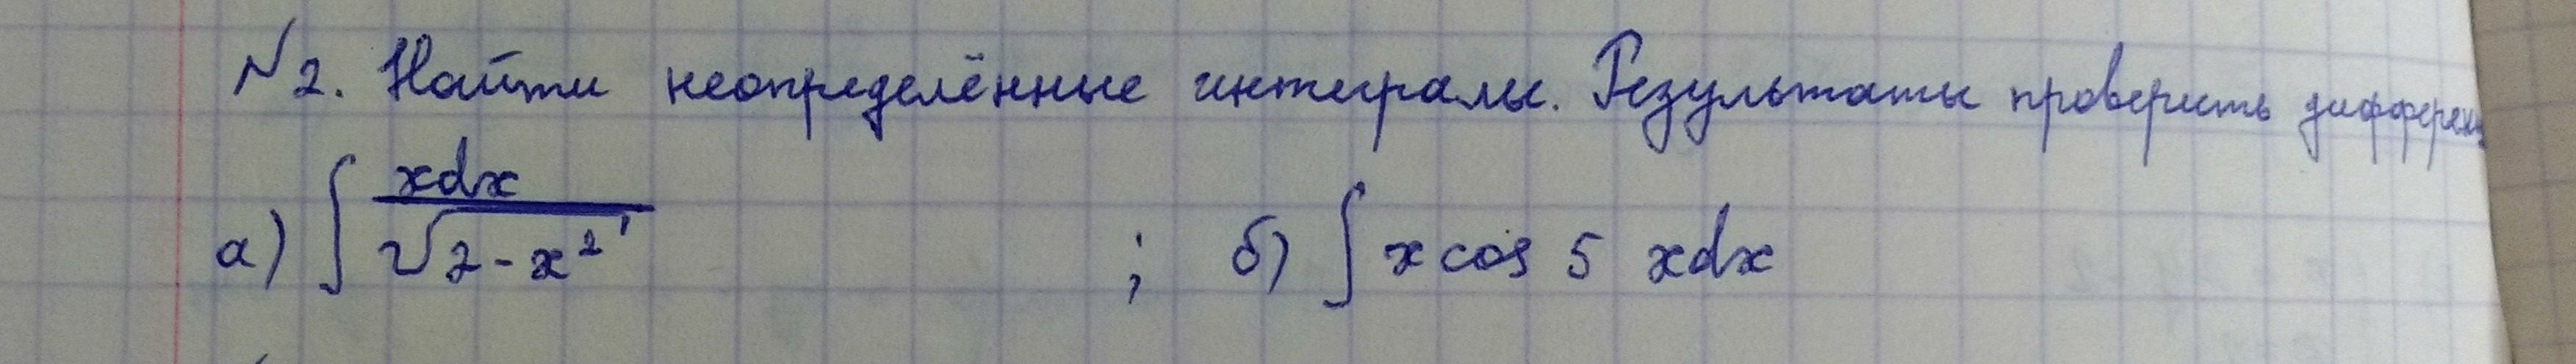 №2. Найти неопределённые интегралы. Результаты проверить дифферен
а) ∫ xdx / √(2-x²) ; б) ∫ x cos 5 xdx